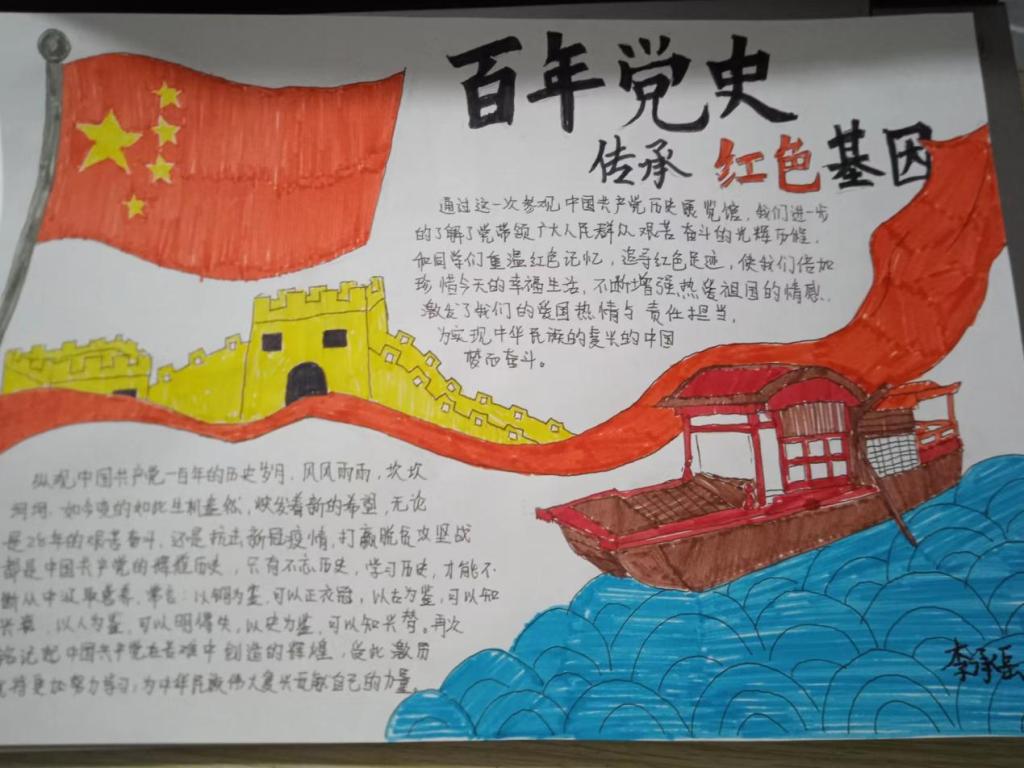 百年党史
传承 红色基因
通过这一次参观中国共产党历史展览馆，我们进一步
的了解了党带领广大人民群众艰苦奋斗的光辉历程，
和同学们重温红色记忆，追寻红色足迹，使我们倍加
珍惜今天的幸福生活，不断增强热爱祖国的情感，
激发了我们的爱国热情与责任担当，
为实现中华民族的复兴的中国
梦而奋斗。
纵观中国共产党一百年的历史岁月，风风雨雨，坎坎
坷坷，如今变的如此生机盎然，焕发着新的希望，无论
是28年的艰苦奋斗，还是抗击新冠疫情，打赢脱贫攻坚战
都是中国共产党的辉煌历史，只有不忘历史，学习历史，才能不
断从中汲取营养，常言：以铜为鉴，可以正衣冠，以古为鉴，可以知
兴衰，以人为鉴，可以明得失，以史为鉴，可以知兴替。再次
铭记起中国共产党在苦难中创造的辉煌，受此激励
将更加努力学习，为中华民族伟大复兴贡献自己的力量。
李承岳